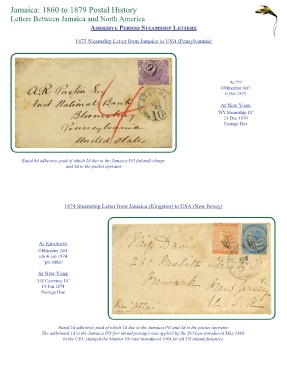 Jamaica: 1860 to 1879 Postal History
Letters Between Jamaica and North America
Adhesive Period Steamship Letters
1873 Steamship Letter from Jamaica to USA (Pennsylvania)
A.R. Paxton Esq
First National Bank
Bloomsburg
Pennsylvania
United States
At ???
Obliterator A47
At New York
"NY Steamship 10"
Postage Due
Rated 6d adhesives paid of which 2d due to the Jamaica PO (inland) charge
and 4d to the packet operator.
1874 Steamship Letter from Jamaica (Kingston) to USA (New Jersey)
At Kingston
Obliterator A01
cds 4 Jun 1874
"per Atlas"
At New York
"US Currency 10"
13 Jun 1874
Postage Due
Miss Davis
Newark
New Jersey
U.S.A
Rated 5d adhesives paid of which 1d due to the Jamaica PO and 4d to the packet operator.
The additional 1d to the Jamaica PO (for inland postage) was applied by the PO Law introduced May 1868.
In the USA, charged the blanket 10c rate introduced 1864 for all US inland distances.